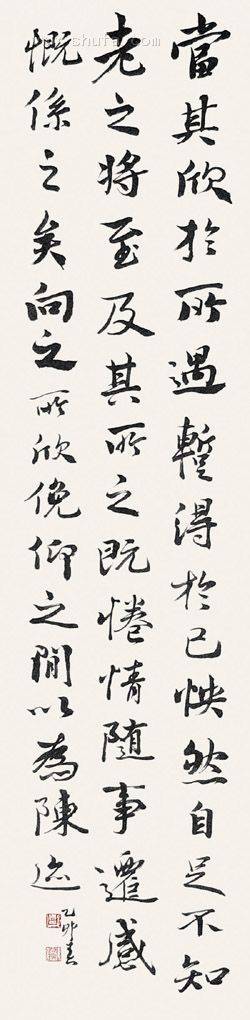 當其欣於所遇蹔得於己怏然自足不知
老之將至及其所之既惓情隨事遷感
慨係之矣向之所欣俛仰之間以為陳迹
乙卯春